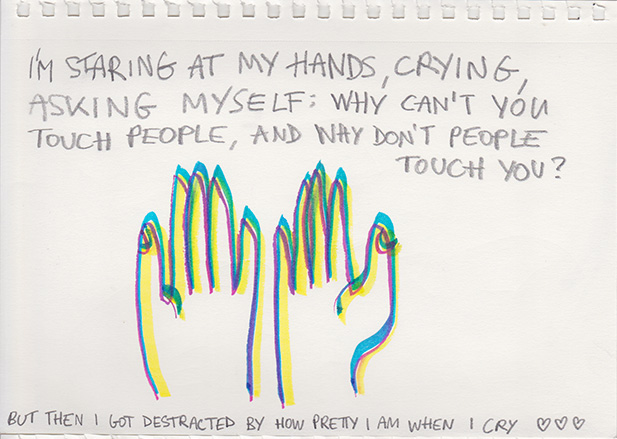 I'M STARING AT MY HANDS, CRYING,
ASKING MYSELF: WHY CAN'T YOU
TOUCH PEOPLE, AND WHY DON'T PEOPLE
TOUCH YOU?
BUT THEN I GOT DESTRACTED BY HOW PRETTY I AM WHEN I CRY ♡♡♡